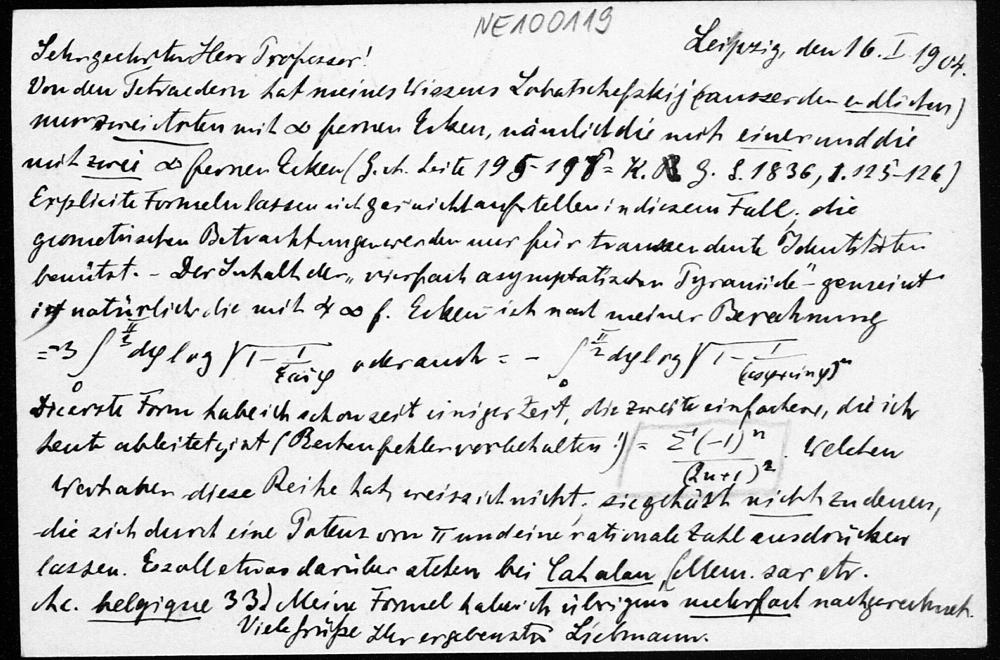 NE100119
Leipzig, den 16. I. 1904.
Sehr geehrter Herr Professor!
Von den Tetraedern hat meines Wissens Lobatschefskij (ausser den endlichen)
nur zwei Arten mit ∞ fernen Ecken, nämlich die mit einer und die
mit zwei ∞ fernen Ecken (Seite 195-198 = S. 1836, 125-126)
Explicite Formeln lassen sich gar nicht aufstellen in diesem Fall, die
geometrischen Betrachtungen werden nur für transzendente Identitäten
benützt. – Der Inhalt der „vierfach asymptotischen Pyramide" – gemeint
ist natürlich die mit 4 ∞ f. Ecken – ist nach meiner Berechnung
= -3 ∫₀^{π/2} dφ log √(1 - φ) oder auch = - ∫₀^{π/2} dφ log √(1 - 1/(cosφ + sinφ)²)
Die erste Form habe ich schon seit einiger Zeit, die zweite einfachere, die ich
heut ableitete, ist (Rechenfehler vorbehalten!) = Σ (-1)ⁿ/(2n+1)². Welchen
Werth aber diese Reihe hat, weiss ich nicht; sie gehört nicht zu denen,
die sich durch eine Potenz von π und eine rationale Zahl ausdrücken
lassen. Es soll etwas darüber stehen bei Catalan (Mem. sav. etr.
Ac. belgique 33) Meine Formel habe ich übrigens mehrfach nachgerechnet.
Viele Grüße Ihr ergebenster Liebmann.